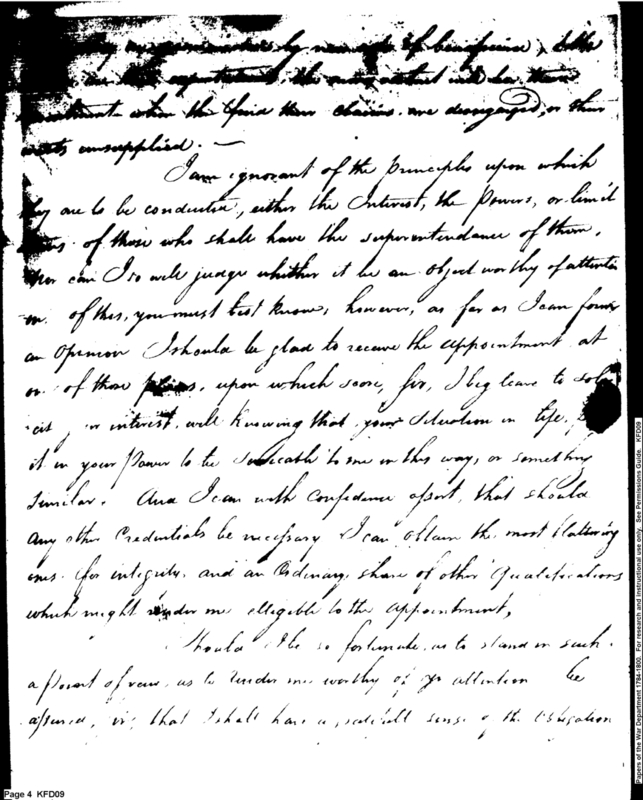 by new acts of beneficence,
the more natural will be their
when they find their claims are disregarded, or their
wants unsupplied. —
I am ignorant of the principles upon which
they are to be conducted, either the Interest, the Powers, or limit
of those who shall have the superentendance of them,
nor can I so well judge whether it be an object worthy of attenti
on. of this, you must best know, however, as far as I can form
an Opinion I should be glad to receive the appointment at
on of those places, upon which score, Sir, I beg leave to sol
icit yr interest, well knowing that your Situation in life,
it in your Power to be servicable to me in this way, or something
Similar. And I can with confidence assert, that should
any other Credentials be necessary I can obtain the most flattering
ones for integrity, and an Ordinary share of other Qualifications
which might render me elegible to the appointment,
Should I be so fortunate as to stand in such
a point of view as to render me worthy of yr attention be
assured, Sir, that I shall have a sense of the Obligation
Page 4 KFD09
Papers of the War Department 1784-1800. For research and instructional use only. See Permissions Guide. KFD09